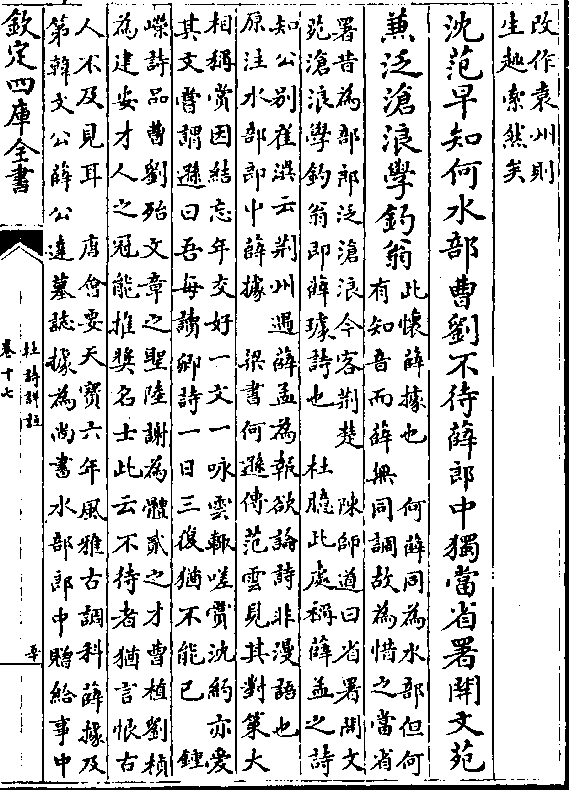 改作袁州則
生趣索然矣
沈范早知何水部曹劉不待薛郎中獨當省署開文苑
兼泛滄浪學釣翁
此懷薛據也　何薛同為水部但何
有知音而薛無同調故為惜之當省
署昔為部郎泛滄浪今客荆楚　陳師道曰省署開文
苑滄浪學釣翁即薛璩詩也　杜臆此處稱薛孟之詩
知公別崔潩云荆州遇薛孟為報欲論詩非漫語也
原注水部郎中薛據　梁書何遜傳范雲見其對策大
相稱賞因結忘年交好一文一咏雲輒嗟賞沈約亦愛
其文嘗謂遜曰吾每讀卿詩一日三復猶不能已　鍾
嶸詩品曹劉殆文章之聖陸謝為體貳之才曹植劉楨
為建安才人之冠能推奬名士此云不待者猶言恨古
人不及見耳　唐會要天寶六年風雅古調科薛據及
第韓文公薛公達墓誌據為尚書水部郎中贈給事中
欽定四庫全書
杜詩詳註
卷十七